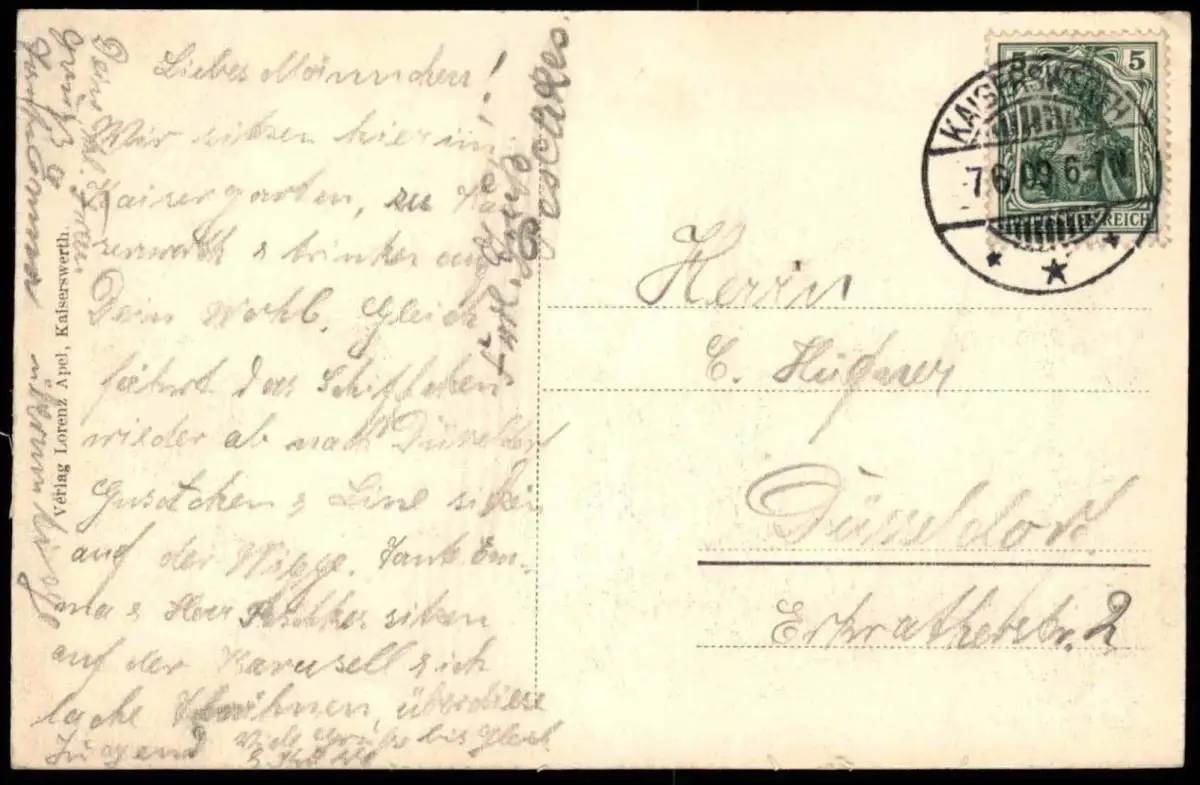 Liebes Männchen!
Wir sitzen hier im
Kaisergarten, zu Kai-
serswerth & trinken auf
Dein Wohl. Gleich
fährt das Schiffchen
wieder ab nach Düsseldorf
Gustchen & Line sitzen
auf der Wippe. Tante Em-
ma & Herr Peschkes sitzen
auf der Karusell & ich
lache Thränen, über diese
Jugend
Viele Grüße bis Gleich
Frdl. Gruß
Peschkes
Gruß
Verlag Lorenz Apel, Kaiserswerth.
KAISERSWERTH
7.6.09 6-7N
5 5
DEUTSCHES REICH
Herrn
C. Hüfner
Düsseldorf.
Erkratherstr. 2